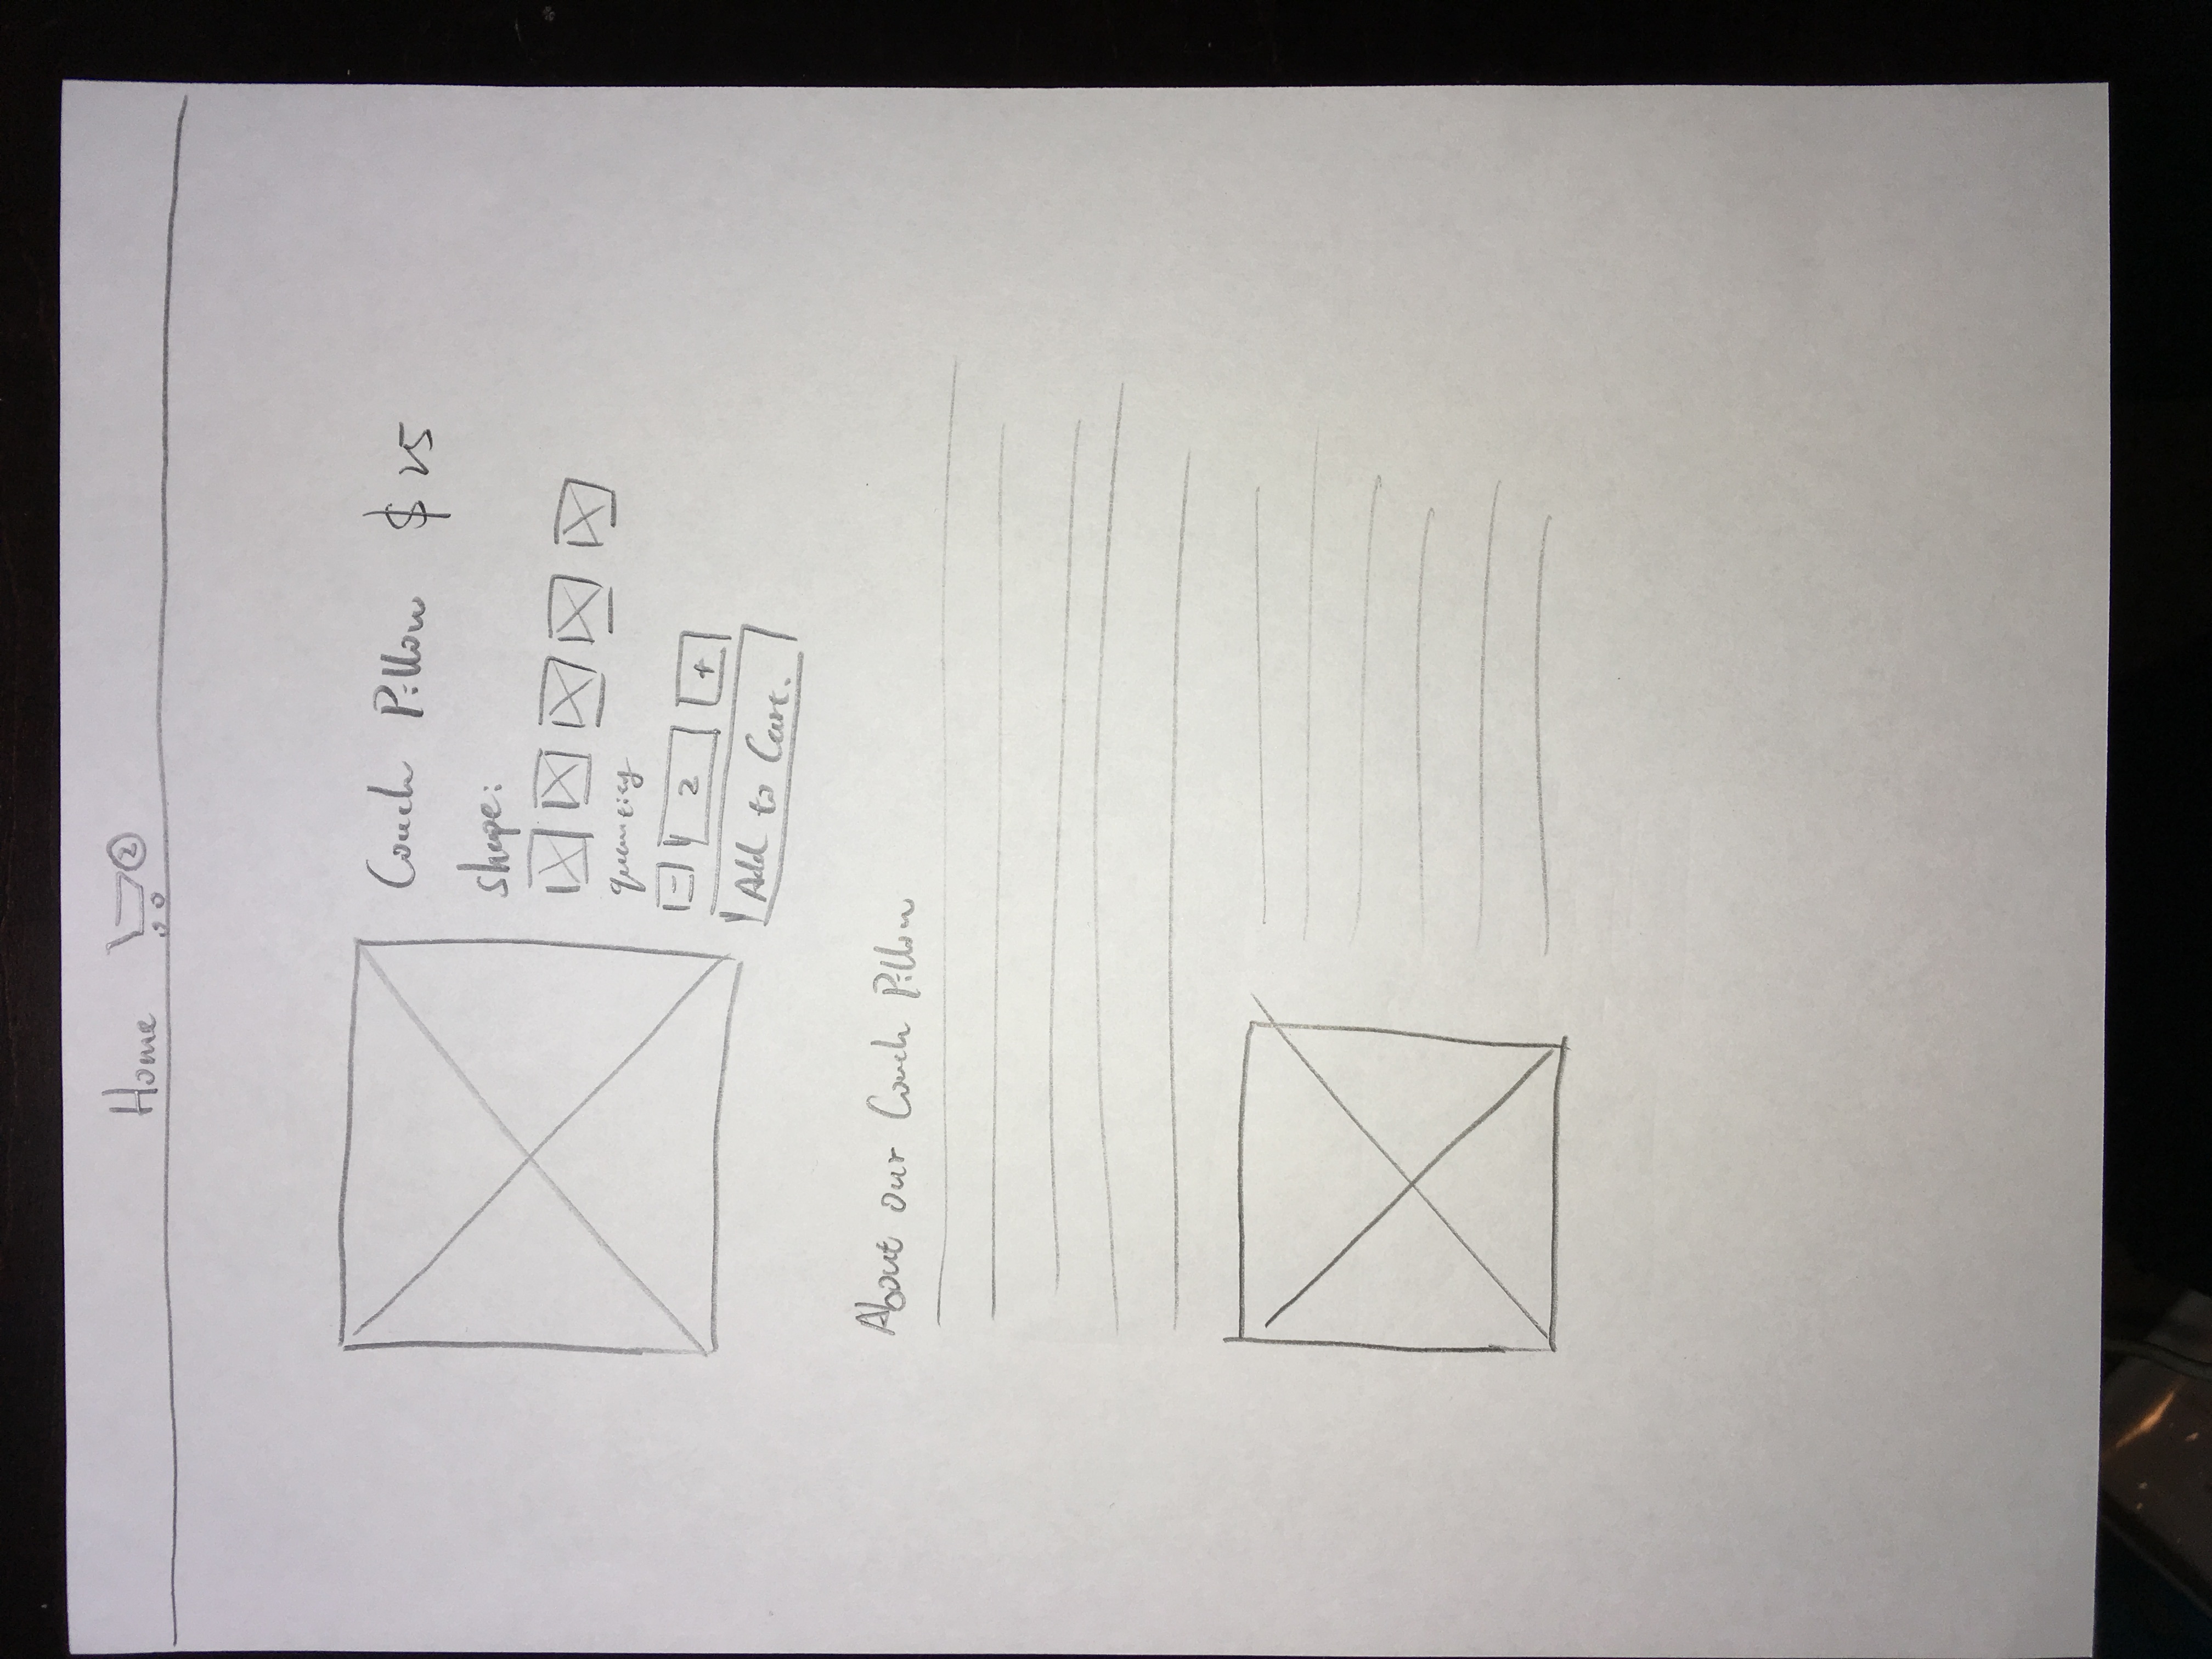 Home 2
Couch Pillow $25
shape:
quantity
- 2 +
Add to Cart.
About our Couch Pillow